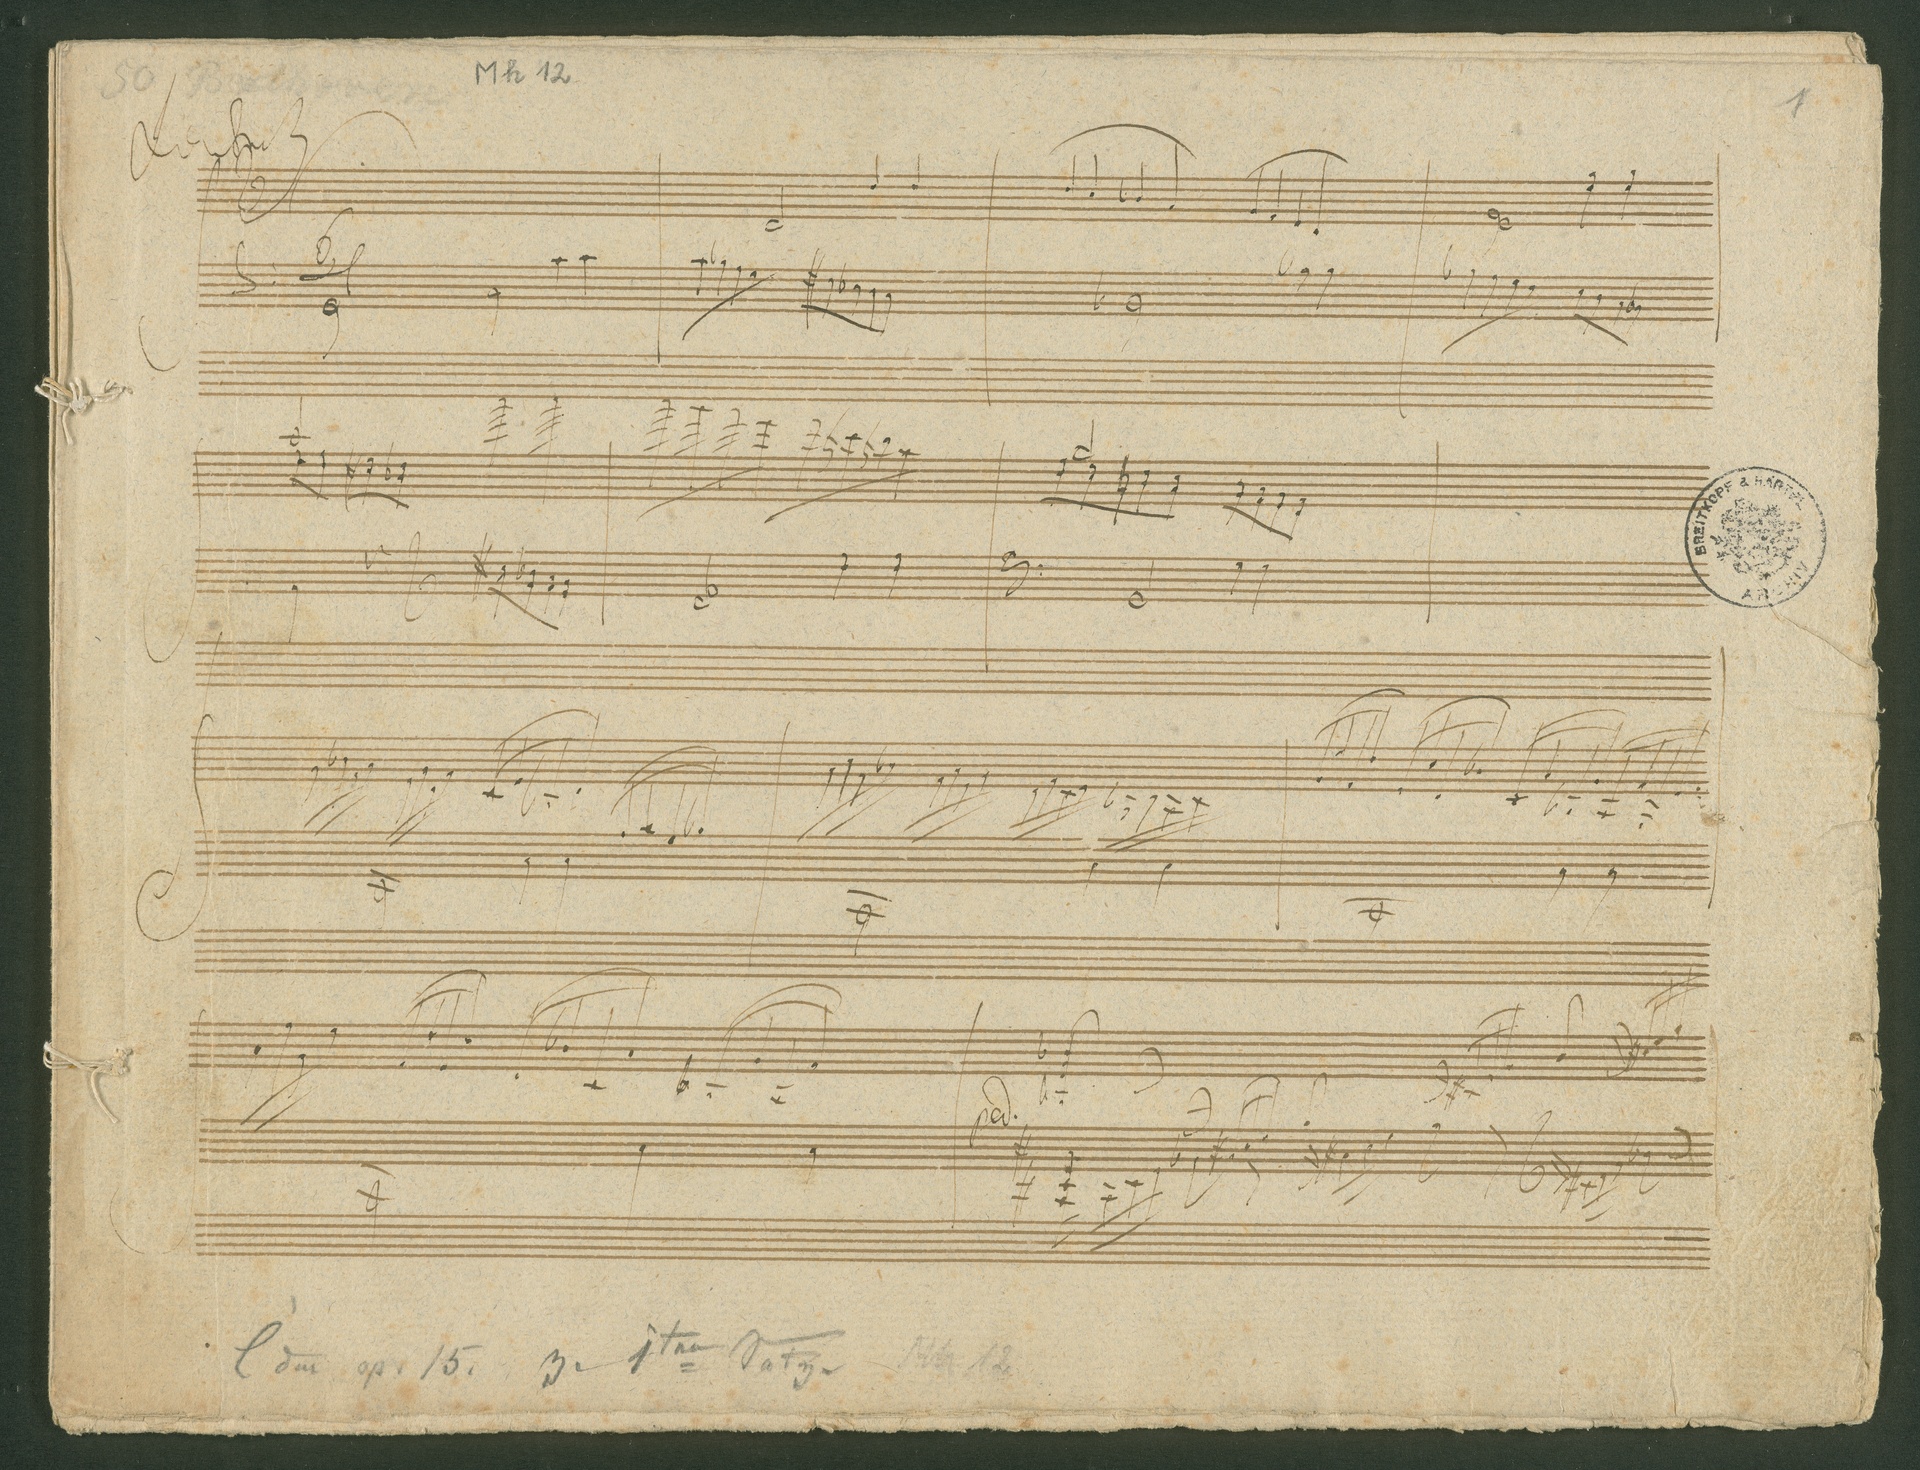 50 Beethoven
Mh 12
1
BREITKOPF & HÄRTEL
ARCHIV
ped.
C dur op. 15. z. 1ten Satz. Mh 12